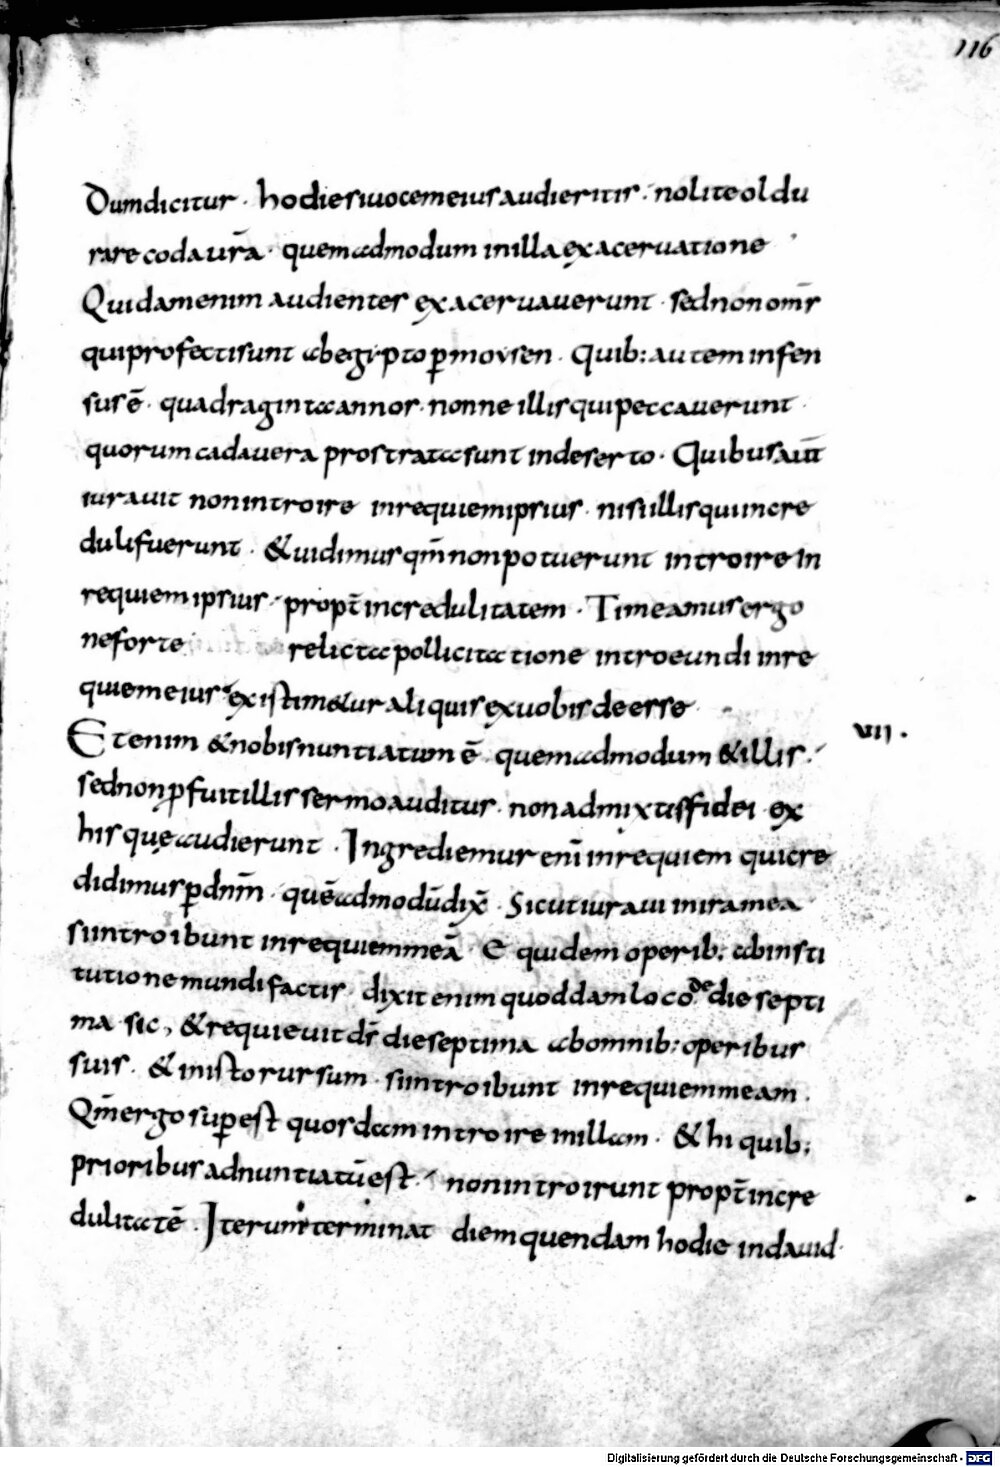 116
Dumdicitur · hodiesiuocemeiusaudieritis · noliteoldu
rarecodaur̄a · quemadmodum inillaexaceruatione
Quidamenim audientes exaceruauerunt · sednonom̄s
quiprofectisunt abegiptop̱moysen · Quib: autem infen
susē · quadragintaannos · nonne illisquipeccauerunt ·
quorumcadauera prostratasunt indeserto · Quibusaut̄
iurauit nonintroire inrequiemipsius · nisiillisquiincre
dulifuerunt · &uidimusqm̄nonpotuerunt introirein
requiemipsius · propt̄incredulitatem · Timeamusergo
neforte relictapollicitatione introeundi inre
quiemeius existim&ur aliquisexuobisdeesse
Etenim &nobisnuntiatumē quemadmodum &illis · vii ·
sednonp̱fuitillissermoauditus · nonadmixtisfidei ex
his quęaudierunt · Ingrediemur enī inrequiem quicre
didimusp̱dnm̄ · quēadmodūdix̄ · Sicutiuraui iniramea
siintroibunt inrequiemmeā · E quidem operib: abinsti
tutionemundifactis dixit enim quoddamlocō de dieseptì
ma sic, &requieuit dr̄ dieseptima abomnib: operibus
suis · &inistorursum siintroibunt inrequiemmeam ·
Qm̄ergosup̱est quosdamintroire inillam · &hi quib:
prioribusadnuntiatūest · nonintroirunt propt̄incre
dulitatē · Iterumterminat diemquendam hodie indauid ·
Digitalisierung gefördert durch die Deutsche Forschungsgemeinschaft - DFG